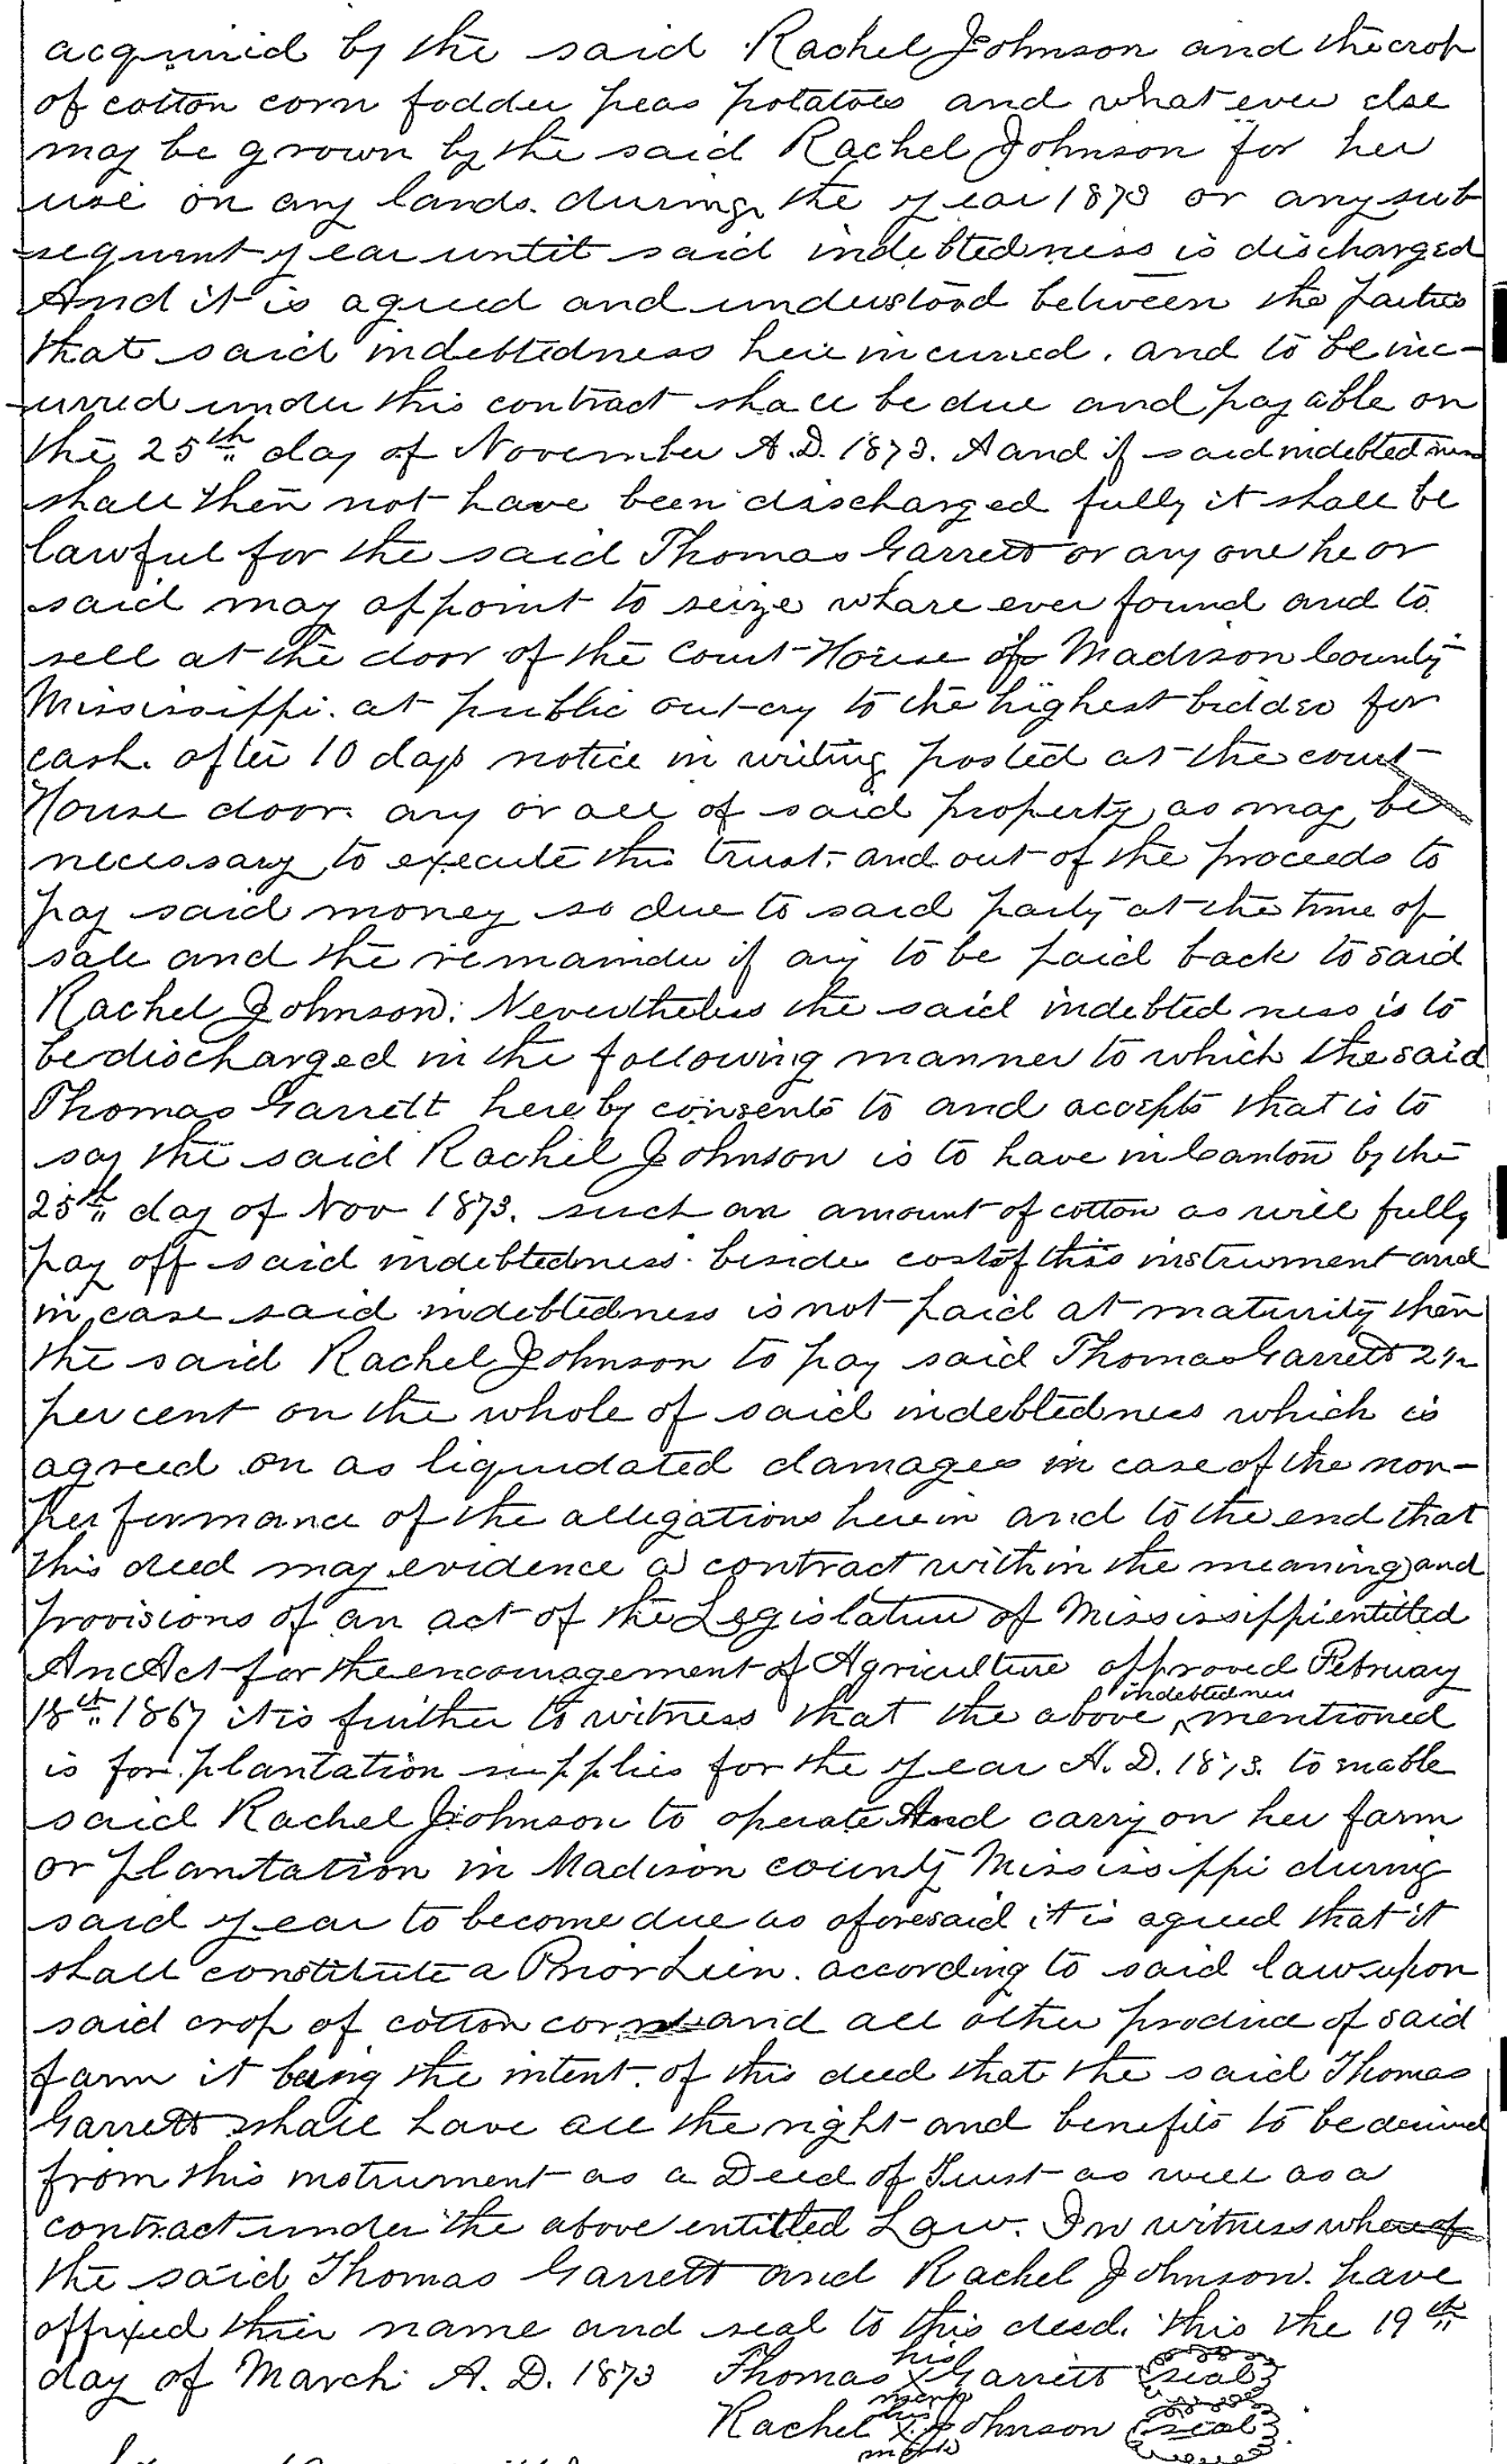 acquired by the said Rachel Johnson and the crop
of cotton corn fodder peas potatoes and what ever else
may be grown by the said Rachel Johnson for her
use on any lands during the year 1873 or any sub
sequent year until said indebtedness is discharged
And it is agreed and understood between the parties
that said indebtedness here incurred. and to be inc-
urred under this contract shall be due and payable on
the 25th day of November A.D. 1873. A and if said indebtedness
shall then not have been discharged fully it shall be
lawful for the said Thomas Garrett or any one he or
said may appoint to seize whare ever found and to
sell at the door of the Court House of Madison County
Mississippi. at public out-cry to the highest bidder for
cash. after 10 days notice in writing posted at the court
House door. any or all of said property as may be
necessary to execute this trust. and out of the proceeds to
pay said money so due to said party at the time of
sale and the remainder if any to be paid back to said
Rachel Johnson: Nevertheless the said indebted ness is to
be discharged in the following manner to which the said
Thomas Garrett hereby consents to and accepts that is to
say the said Rachel Johnson is to have in Canton by the
25th day of Nov 1873. such an amount of cotton as will fully
pay off said indebtedness. besides cost of this instrument and
in case said indebtedness is not paid at maturity then
the said Rachel Johnson to pay said Thomas Garrett 2 1/2
per cent on the whole of said indebtedness which is
agreed on as liquidated damages in case of the non-
performance of the allegations herein and to the end that
this deed may evidence a contract within the meaning and
provisions of an act of the Legislature of Mississippi entitled
An Act for the encouragement of Agriculture approved February
18th 1867 it is further to witness that the above indebtedness mentioned
is for plantation supplies for the year A. D. 1873. to enable
said Rachel Johnson to operate And carry on her farm
or plantation in Madison county Mississippi during
said year to become due as aforesaid it is agreed that it
shall constitute a Prior Lien. according to said law upon
said crop of cotton corn and all other produce of said
farm it being the intent. of this deed that the said Thomas
Garrett shall have all the right and benefits to be derived
from this instrument as a Deed of Trust as well as a
contract under the above entitled Law. In witness whereof
the said Thomas Garrett and Rachel Johnson. have
affixed their name and seal to this deed. this the 19th
day of March A. D. 1873 Thomas his X mark Garrett seal
Rachel X Johnson seal